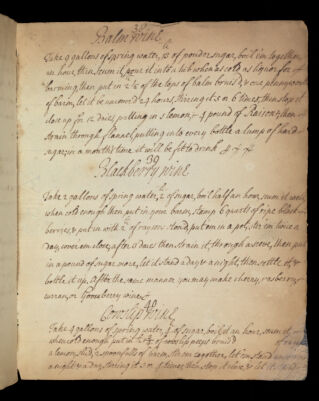 38
Balme wine
Take 9 gallons of spring water, 12 of pouder sugar, boil 'em together
an hour, then scum it, pour it into a tub when as cold as liquor for
barming then put in 2 ½ of the tops of balm bruis'd, & one pennyworth
of barm, let it be uncover'd 24 hours stirring it 5 or 6 times, then stop it
close up for 12 dais, putting in 1 lemon & 4 pound of Raisons, then
strain through flannel putting into every bottle a lump of hard
sugar, in a month's time it will be fit to drink
39
Blackberry wine
Take 2 gallons of spring water, 2 of sugar, boil half an hour, scum it well,
when cold enough then put in your barm, stamp 6 quarts of ripe black
berries, & put in with 2 of raysons ston'd, put 'em in a pot, stir 'em twice a
day, cover 'em close, after 11 daies then strain it through a sieve, then put
in a pound of sugar more, let it stand a day & a night, then settle it, &
bottle it up. After the same manner you may make cherry, rasberry,
curran, or Gooseberry wine
40
Cowslip wine
Take 4 gallons of spring water, of sugar, boil it an hour, scum it,
when cold enough put in of cowslip peeps bruis'd
a lemon slic'd, 2 spoonfulls of barm, stir 'em together, let 'em stand
a night & a day, stiring it 3 or 4 times, then stop it close & let it stand